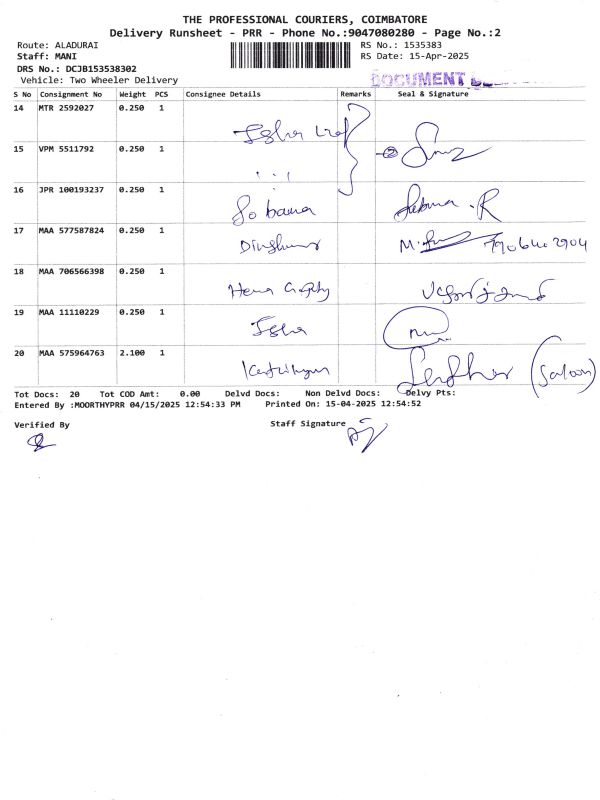 THE PROFESSIONAL COURIERS, COIMBATORE
Delivery Runsheet - PRR - Phone No.:9047080280 - Page No.:2
Route: ALADURAI
Staff: MANI
DRS No.: DCJB153538302
Vehicle: Two Wheeler Delivery
RS No.: 1535383
RS Date: 15-Apr-2025
DOCUMENT
S No Consignment No Weight PCS Consignee Details Remarks Seal & Signature
14 MTR 2592027 0.250 1
15 VPM 5511792 0.250 1
16 JPR 100193237 0.250 1 Sobana
17 MAA 577587824 0.250 1
18 MAA 706566398 0.250 1 Hema
19 MAA 11110229 0.250 1
20 MAA 575964763 2.100 1
Tot Docs: 20 Tot COD Amt: 0.00 Delvd Docs: Non Delvd Docs: Delvy Pts:
Entered By :MOORTHYPRR 04/15/2025 12:54:33 PM Printed On: 15-04-2025 12:54:52
Verified By Staff Signature